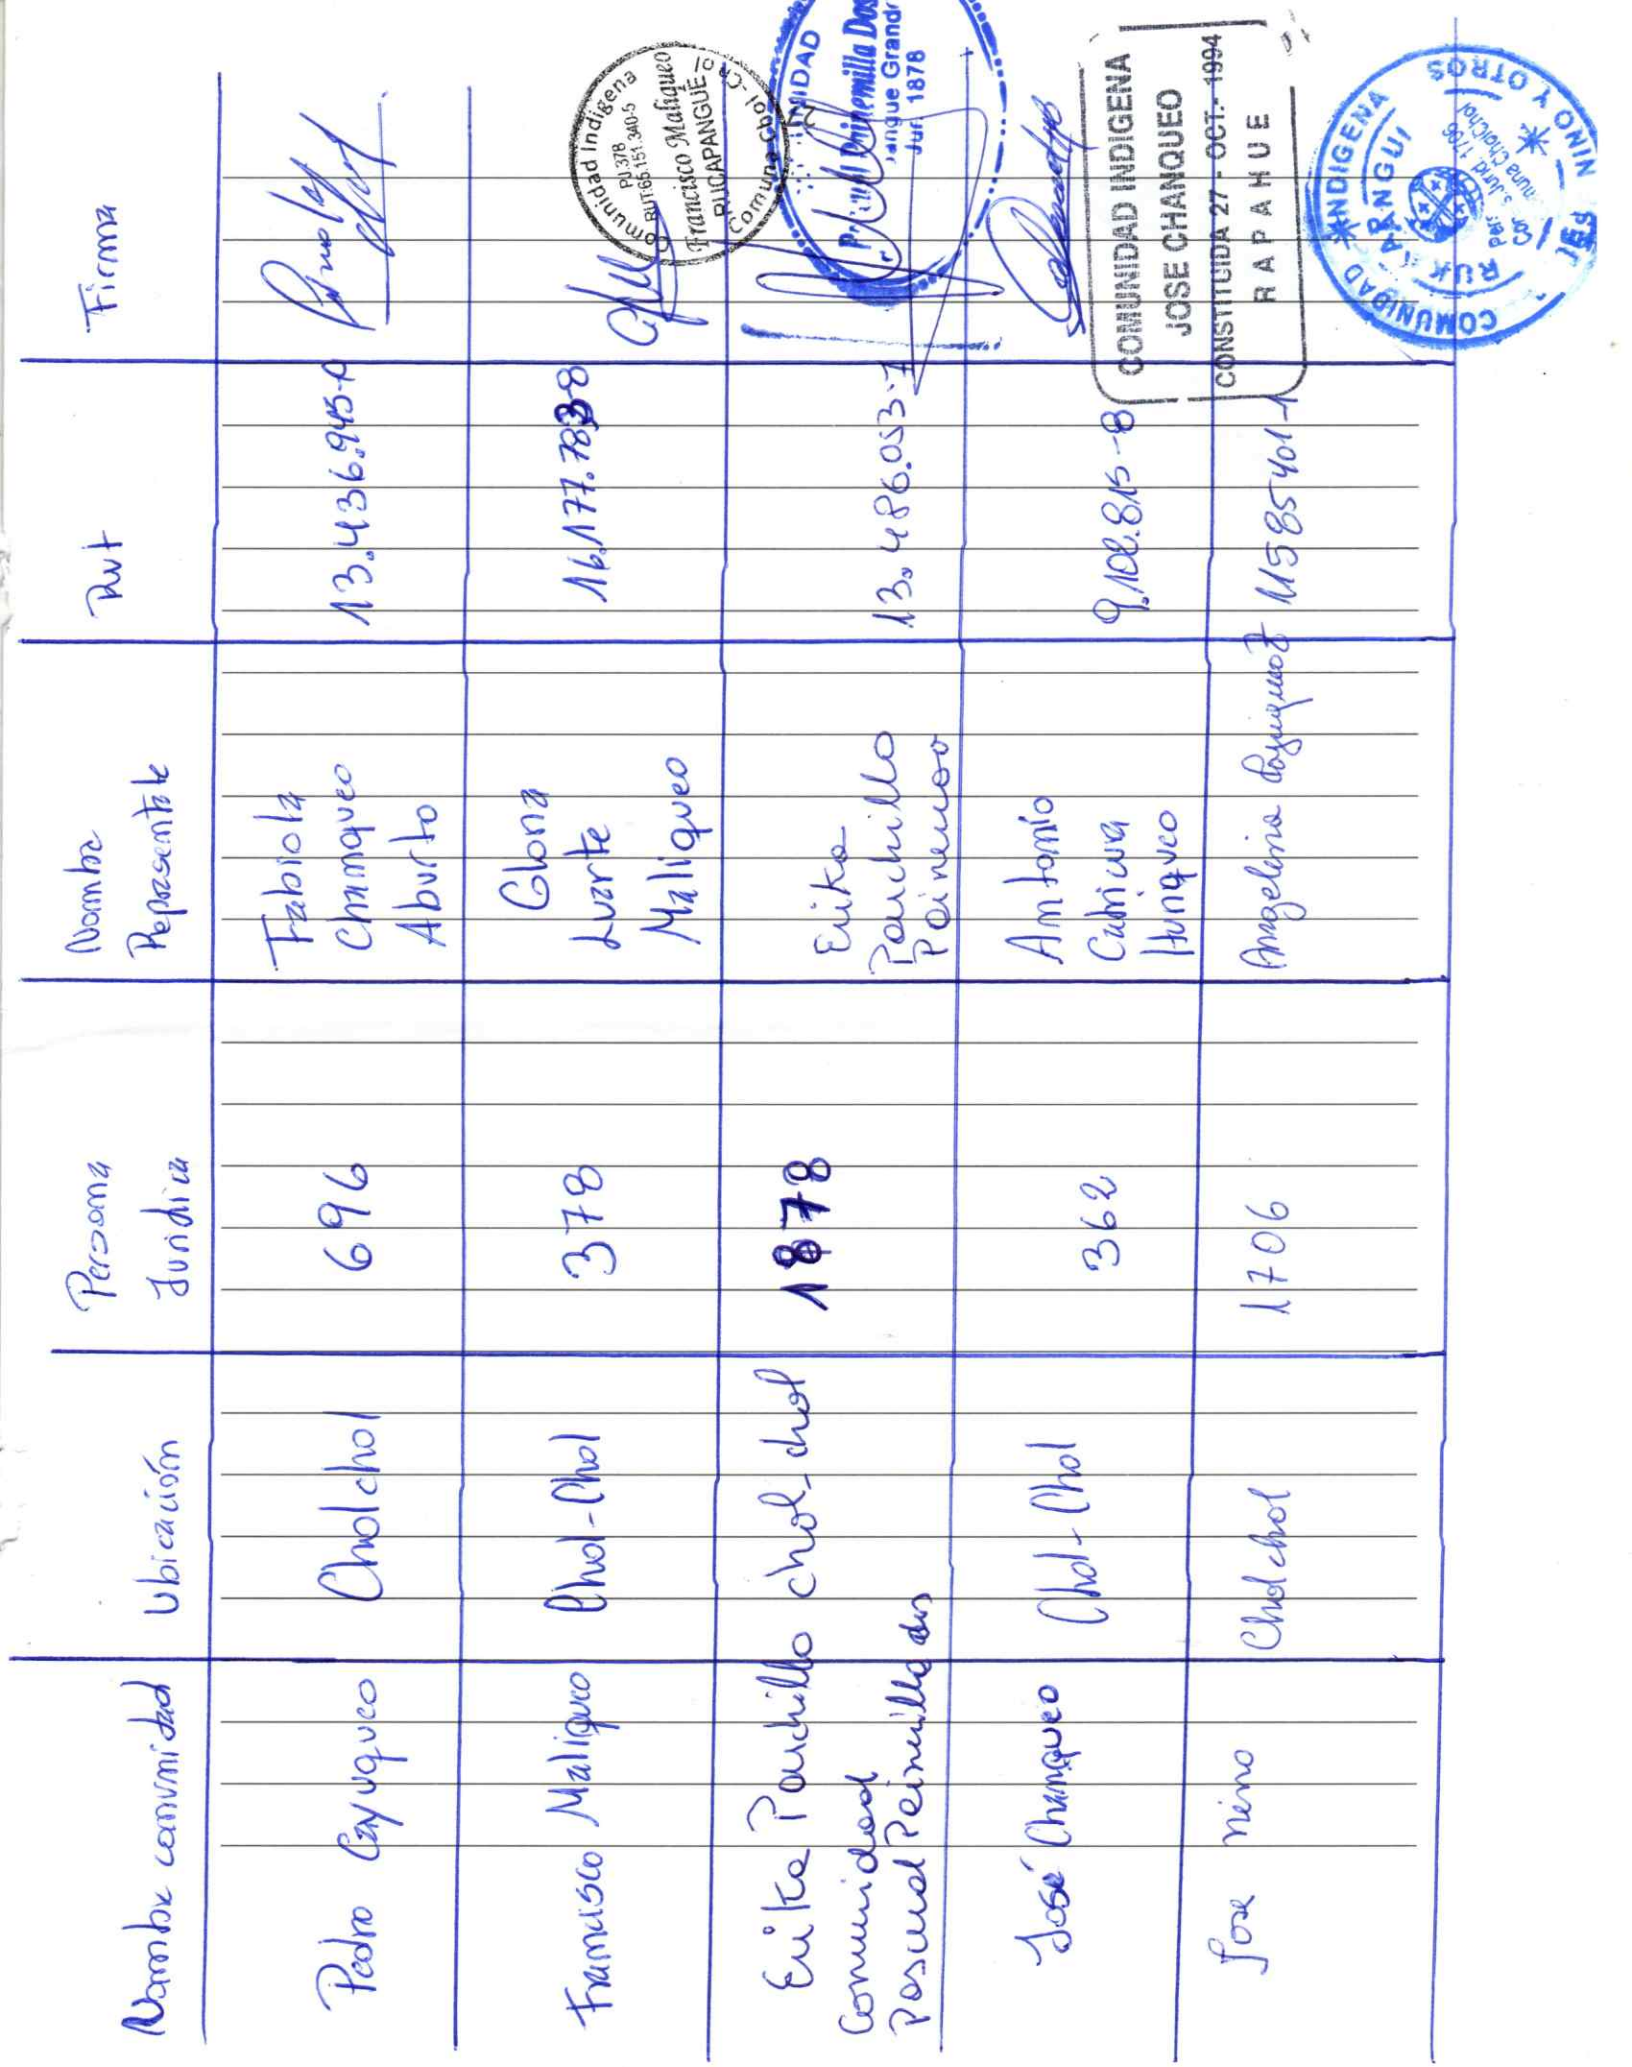 Nombre comunidad Ubicación Persona Juridica Nombre Representate Rut Firma
Pedro Cayuqueo Cholchol 696 Fabiola Chanqueo Aburto 13.436.945-0
Francisco Maliqueo Chol-Chol 378 Gloria Luarte Maliqueo 16.177.783-8
Comunidad Indigena
PJ.378
RUT:65.151.340-5
Francisco Maliqueo
RUCAPANGUE
Comuna Chol-Ch
Erika Panchillo chol-chol 1878 Erika Panchillo Painenao 13.486.053-7
Comunidad
Pascual Peinemilla dos
Jur. 1878
José Chanqueo Chol-Chol 362 Antonio Curicua Hunqueo 9.102.815-8
COMUNIDAD INDIGENA
JOSE CHANQUEO
CONSTITUIDA 27 - OCT.- 1994
RAPAHUE
Jose nino Cholchol 1706 Angelina 11585401-1
COMUNIDAD INDIGENA
NINO Y OTROS
Pers. Jurid. 1706